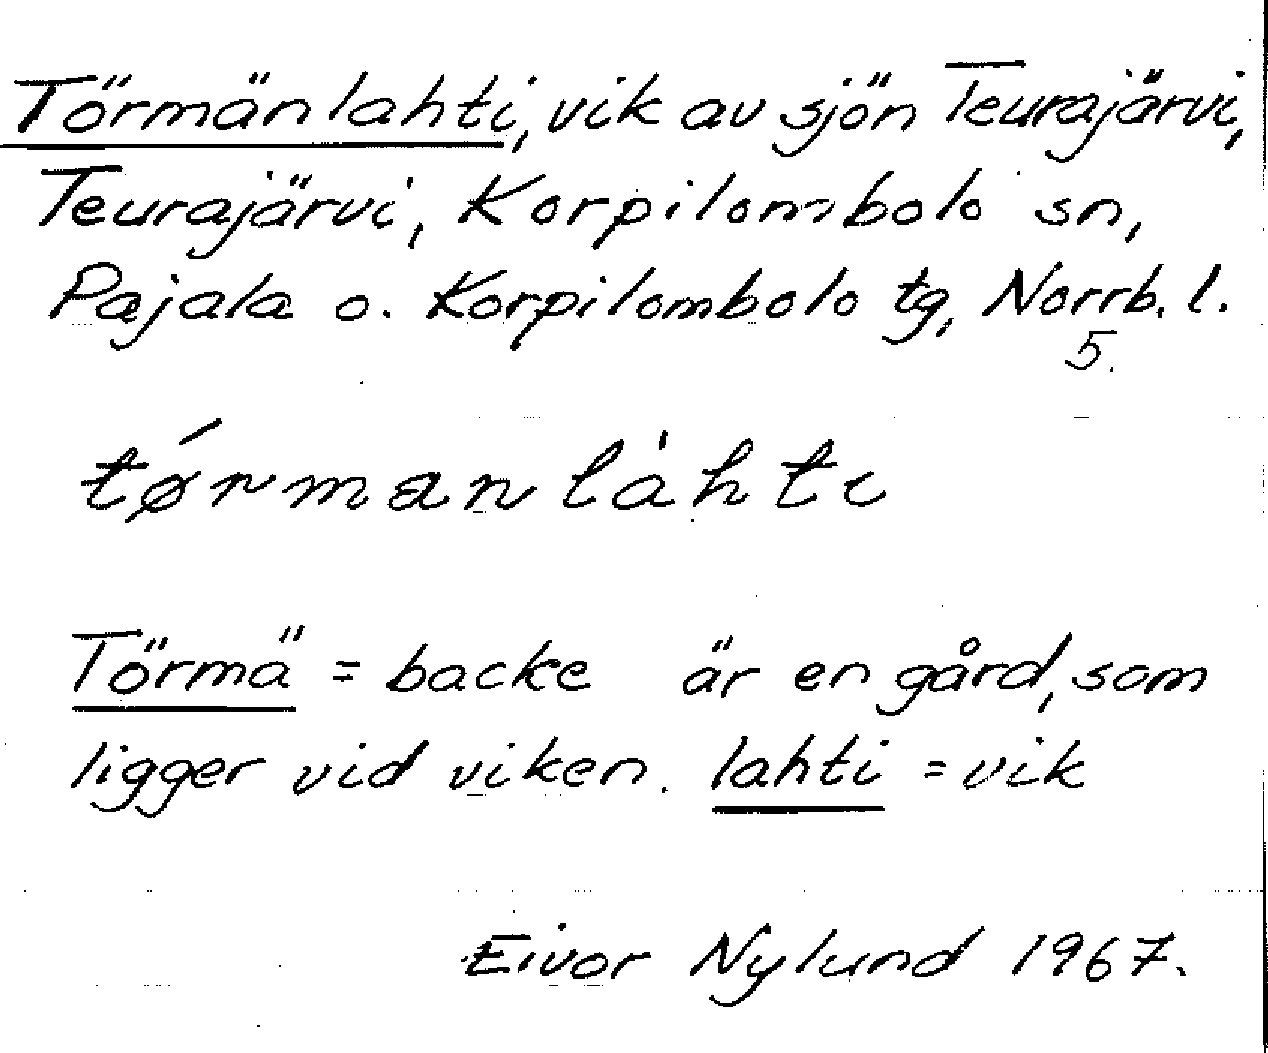 Törmänlahti, vik av sjön Teurajärvi,
Teurajärvi, Korpilombolo sn,
Pajala o. Korpilombolo tg, Norrb. l.
5.
tǿrmanlàhti
Törmä = backe är en gård, som
ligger vid viken. lahti = vik
Eivor Nylund 1967.